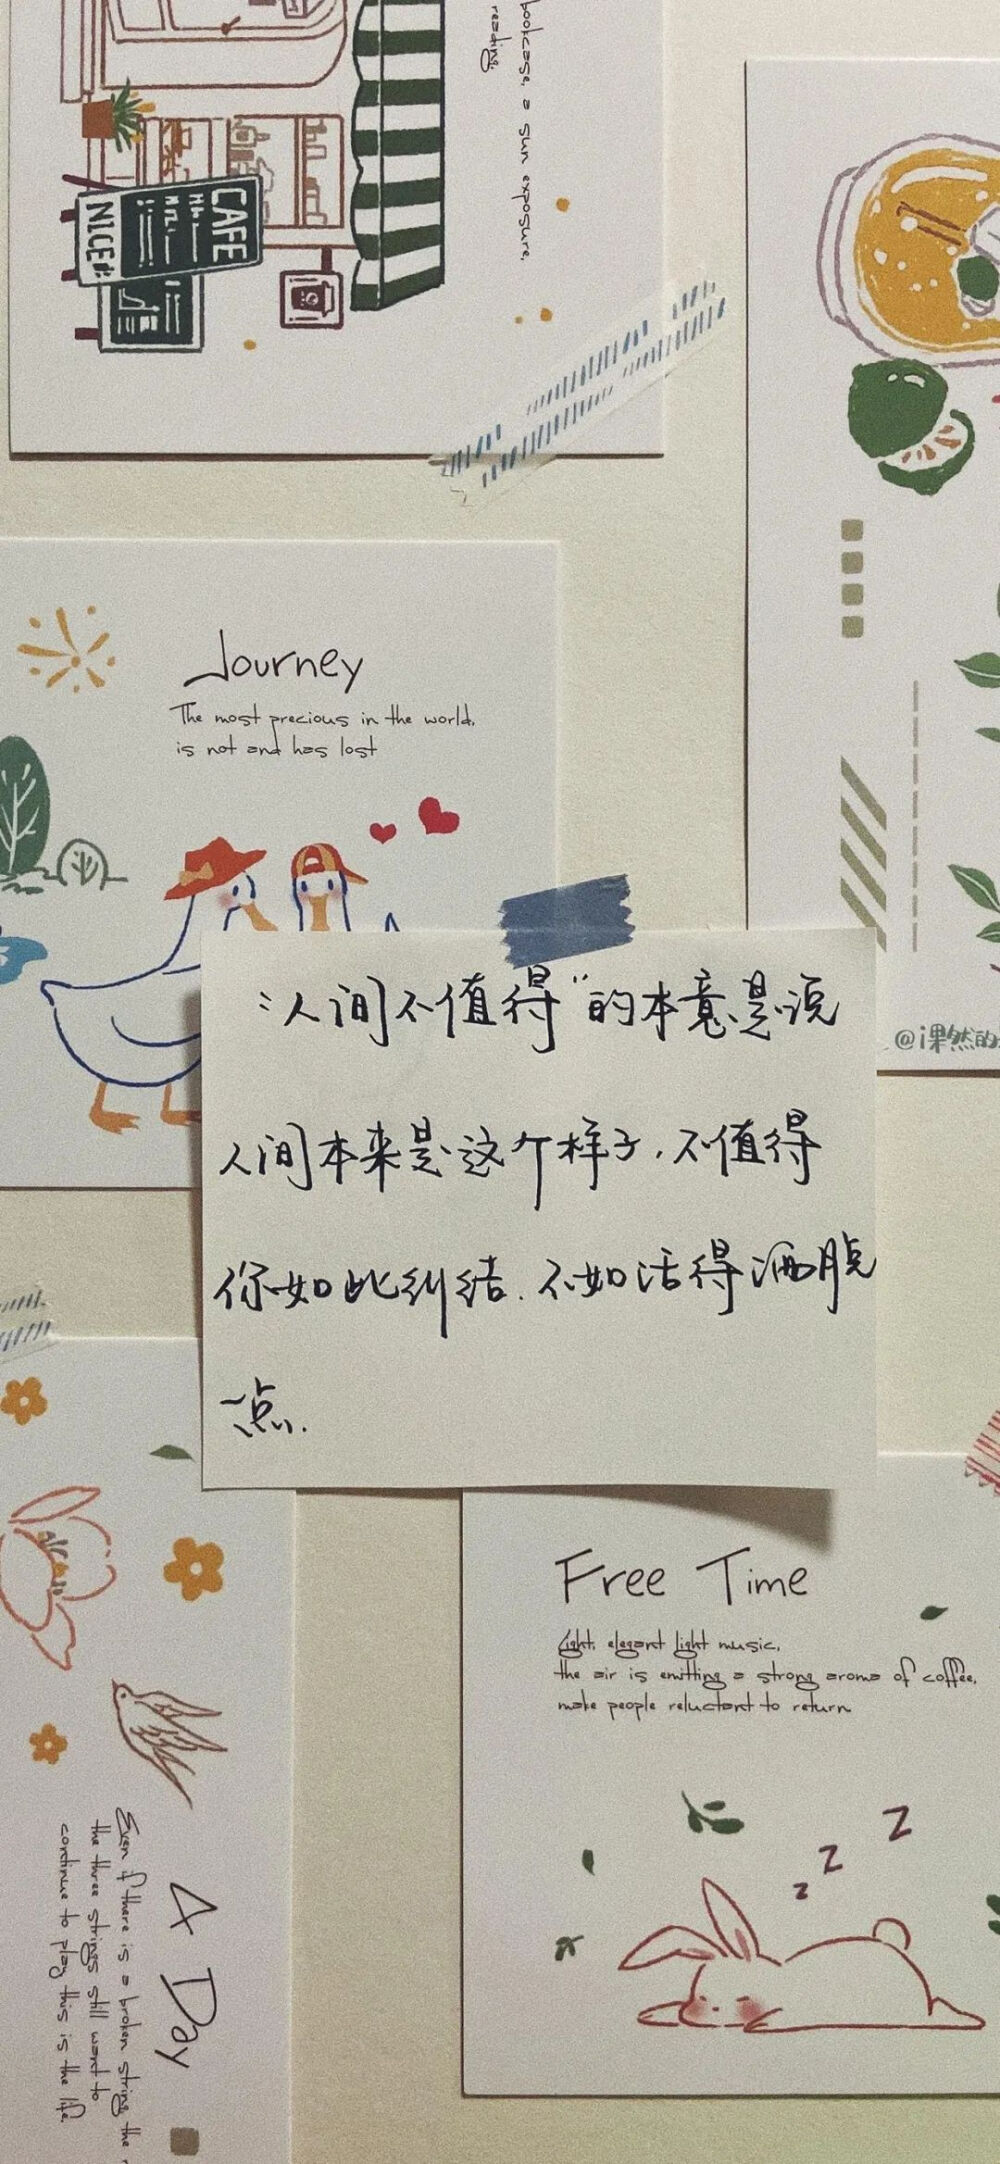 bookcase, a sun exposure.
reading.
CAFE
NICE
Journey
The most precious in the world,
is not and has lost
"人间不值得"的本意是说
人间本来是这个样子,不值得
你如此纠结.不如活得洒脱
一点.
@i果然的
Free Time
Light, elegant light music,
the air is emitting a strong aroma of coffee,
make people reluctant to return
zzz
A Day
Even if there is a broken string the
the three strings still want to
continue to play this is the life